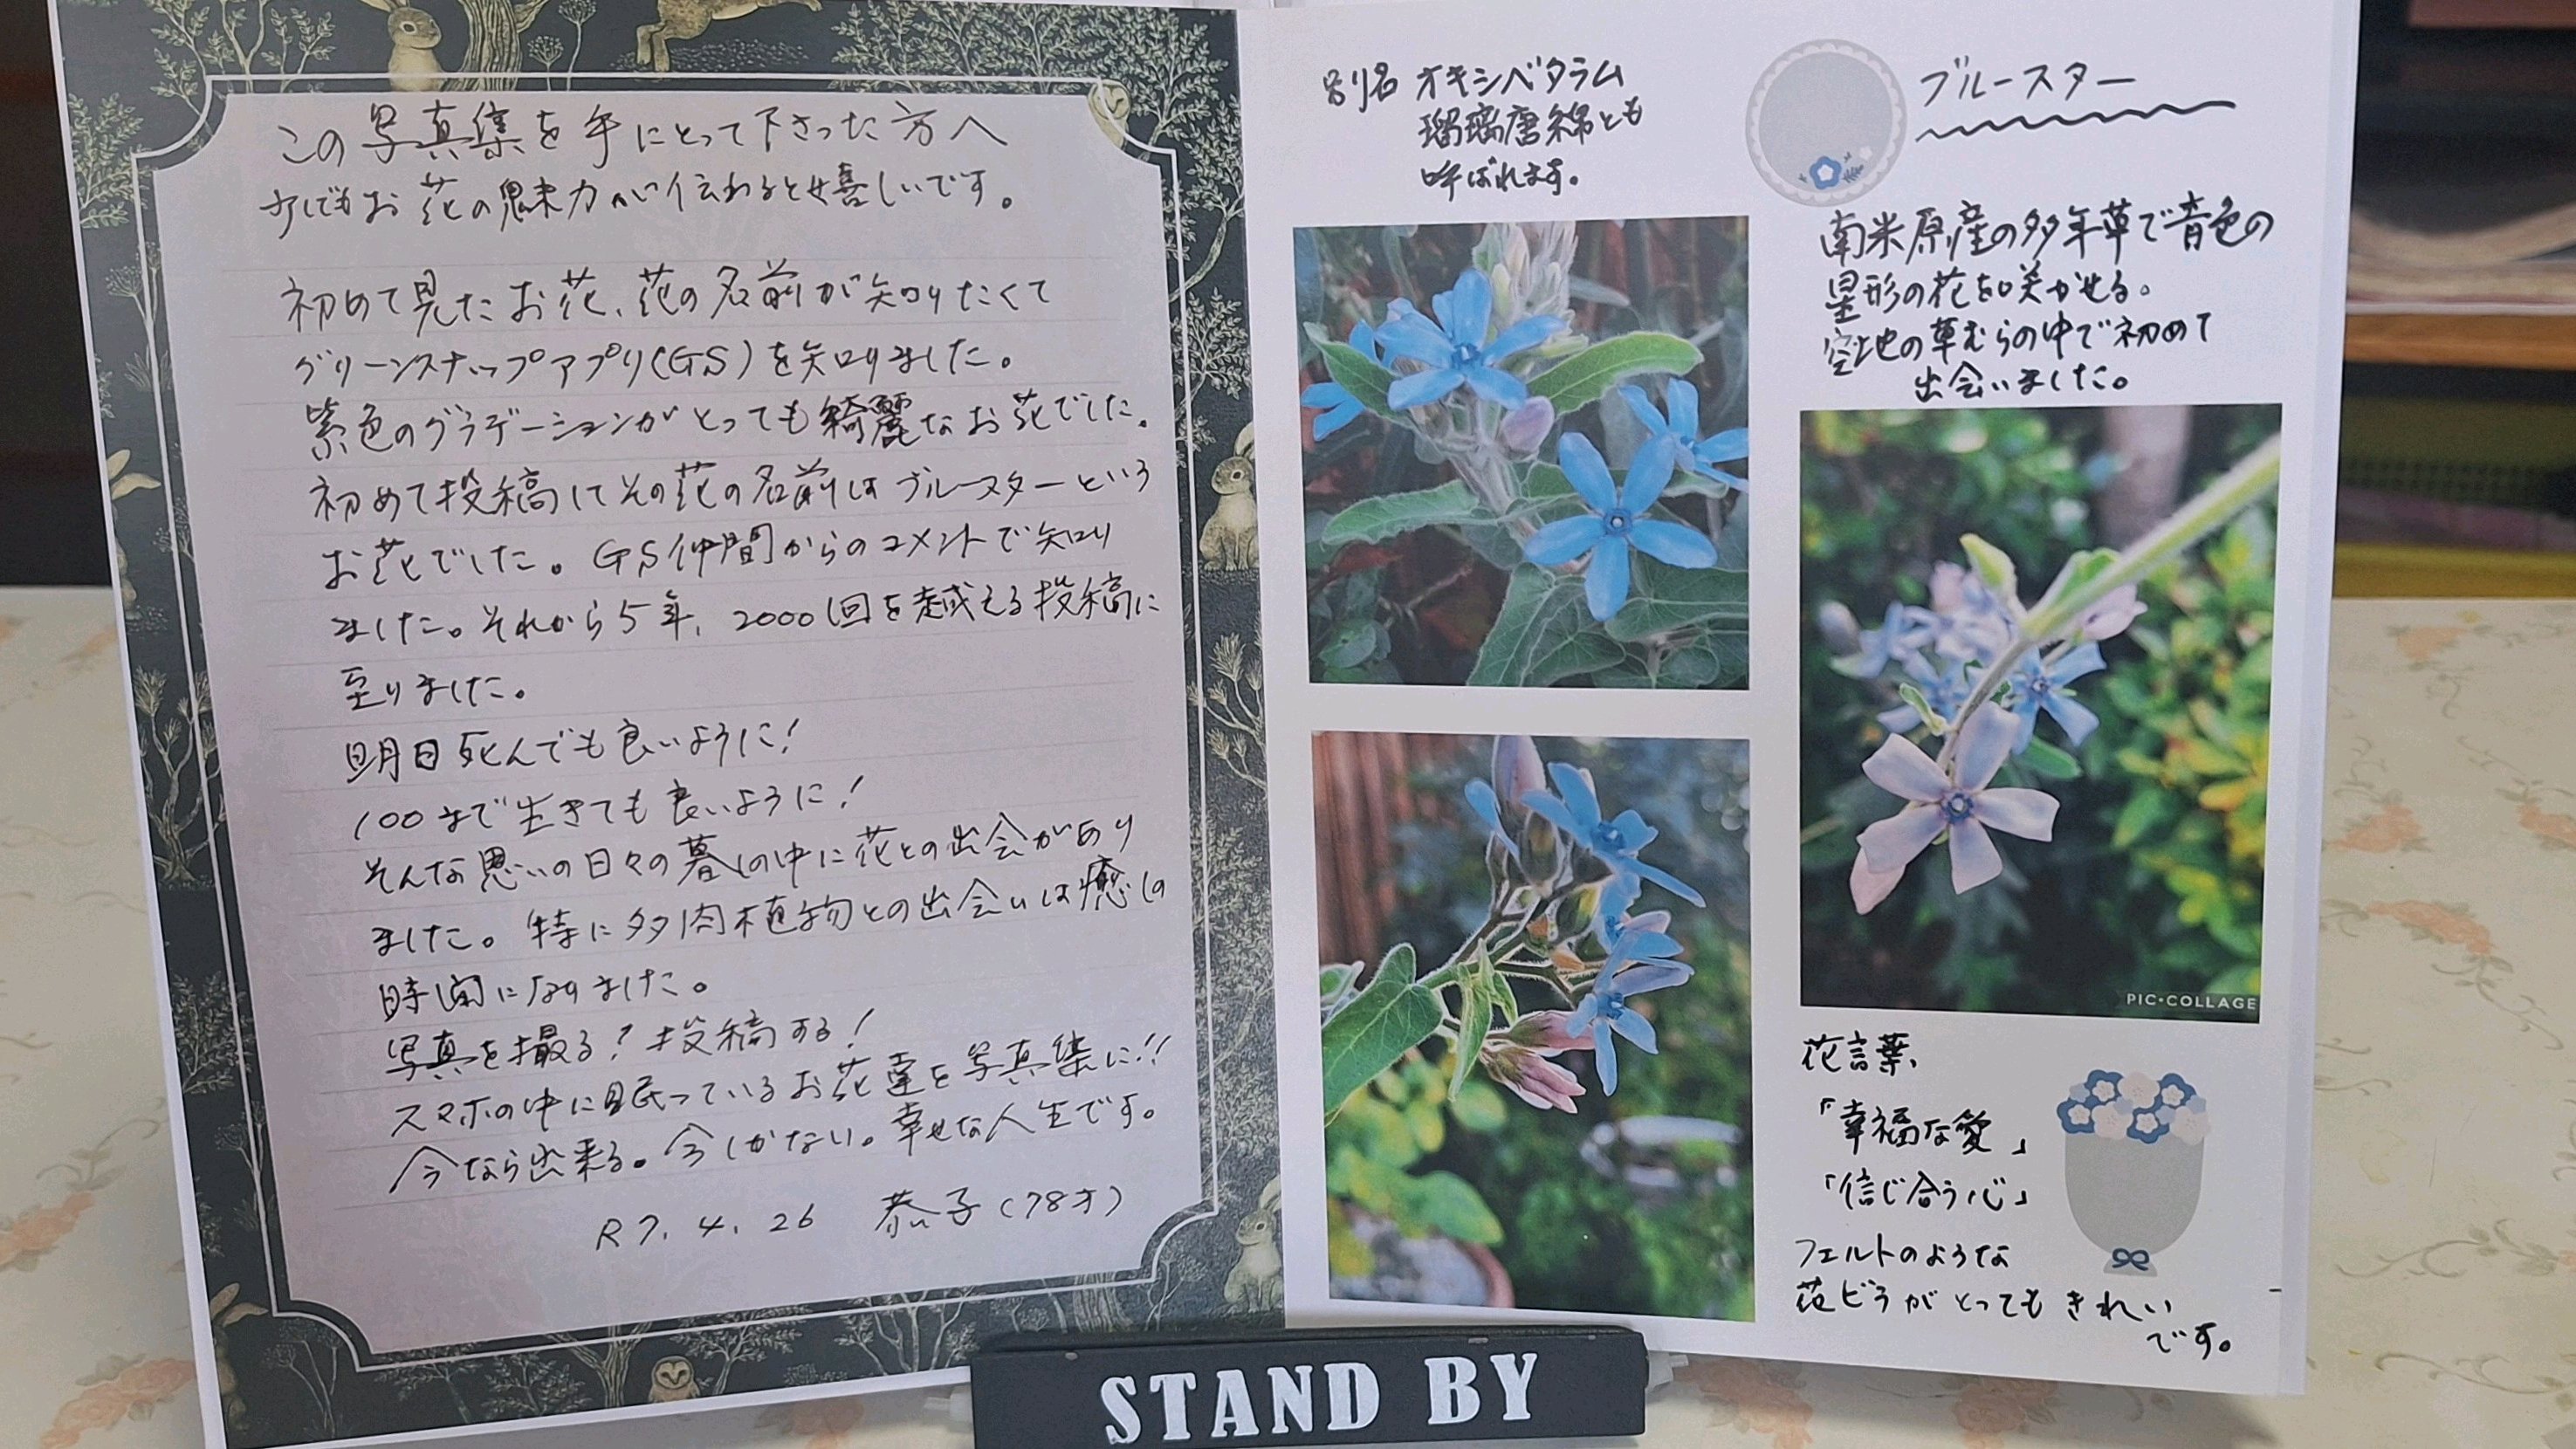 この写真集を手にとって下さった方へ
少しでもお花の魅力が伝わると嬉しいです。
初めて見たお花、花の名前が知りたくて
グリーンスナップアプリ(GS)を知りました。
紫色のグラデーションがとっても綺麗なお花でした。
初めて投稿してその花の名前はブルースターという
お花でした。GS仲間からのコメントで知り
ました。それから5年、2000回を越える投稿に
至りました。
明日死んでも良いように!
100まで生きても良いように!
そんな思いの日々の暮しの中に花との出会があり
ました。特に多肉植物との出会いは癒しの
時間になりました。
写真を撮る!投稿する!
スマホの中に眠っているお花達を写真集に!!
今なら出来る。今しかない。幸せな人生です。
R7.4.26 恭子(78才)
別名 オキシペタラム
瑠璃唐綿とも
呼ばれます。
ブルースター
南米原産の多年草で青色の
星形の花を咲かせる。
空地の草むらの中で初めて
出会いました。
PIC•COLLAGE
花言葉、
「幸福な愛」
「信じ合う心」
フェルトのような
花ビラがとってもきれい
です。
STAND BY